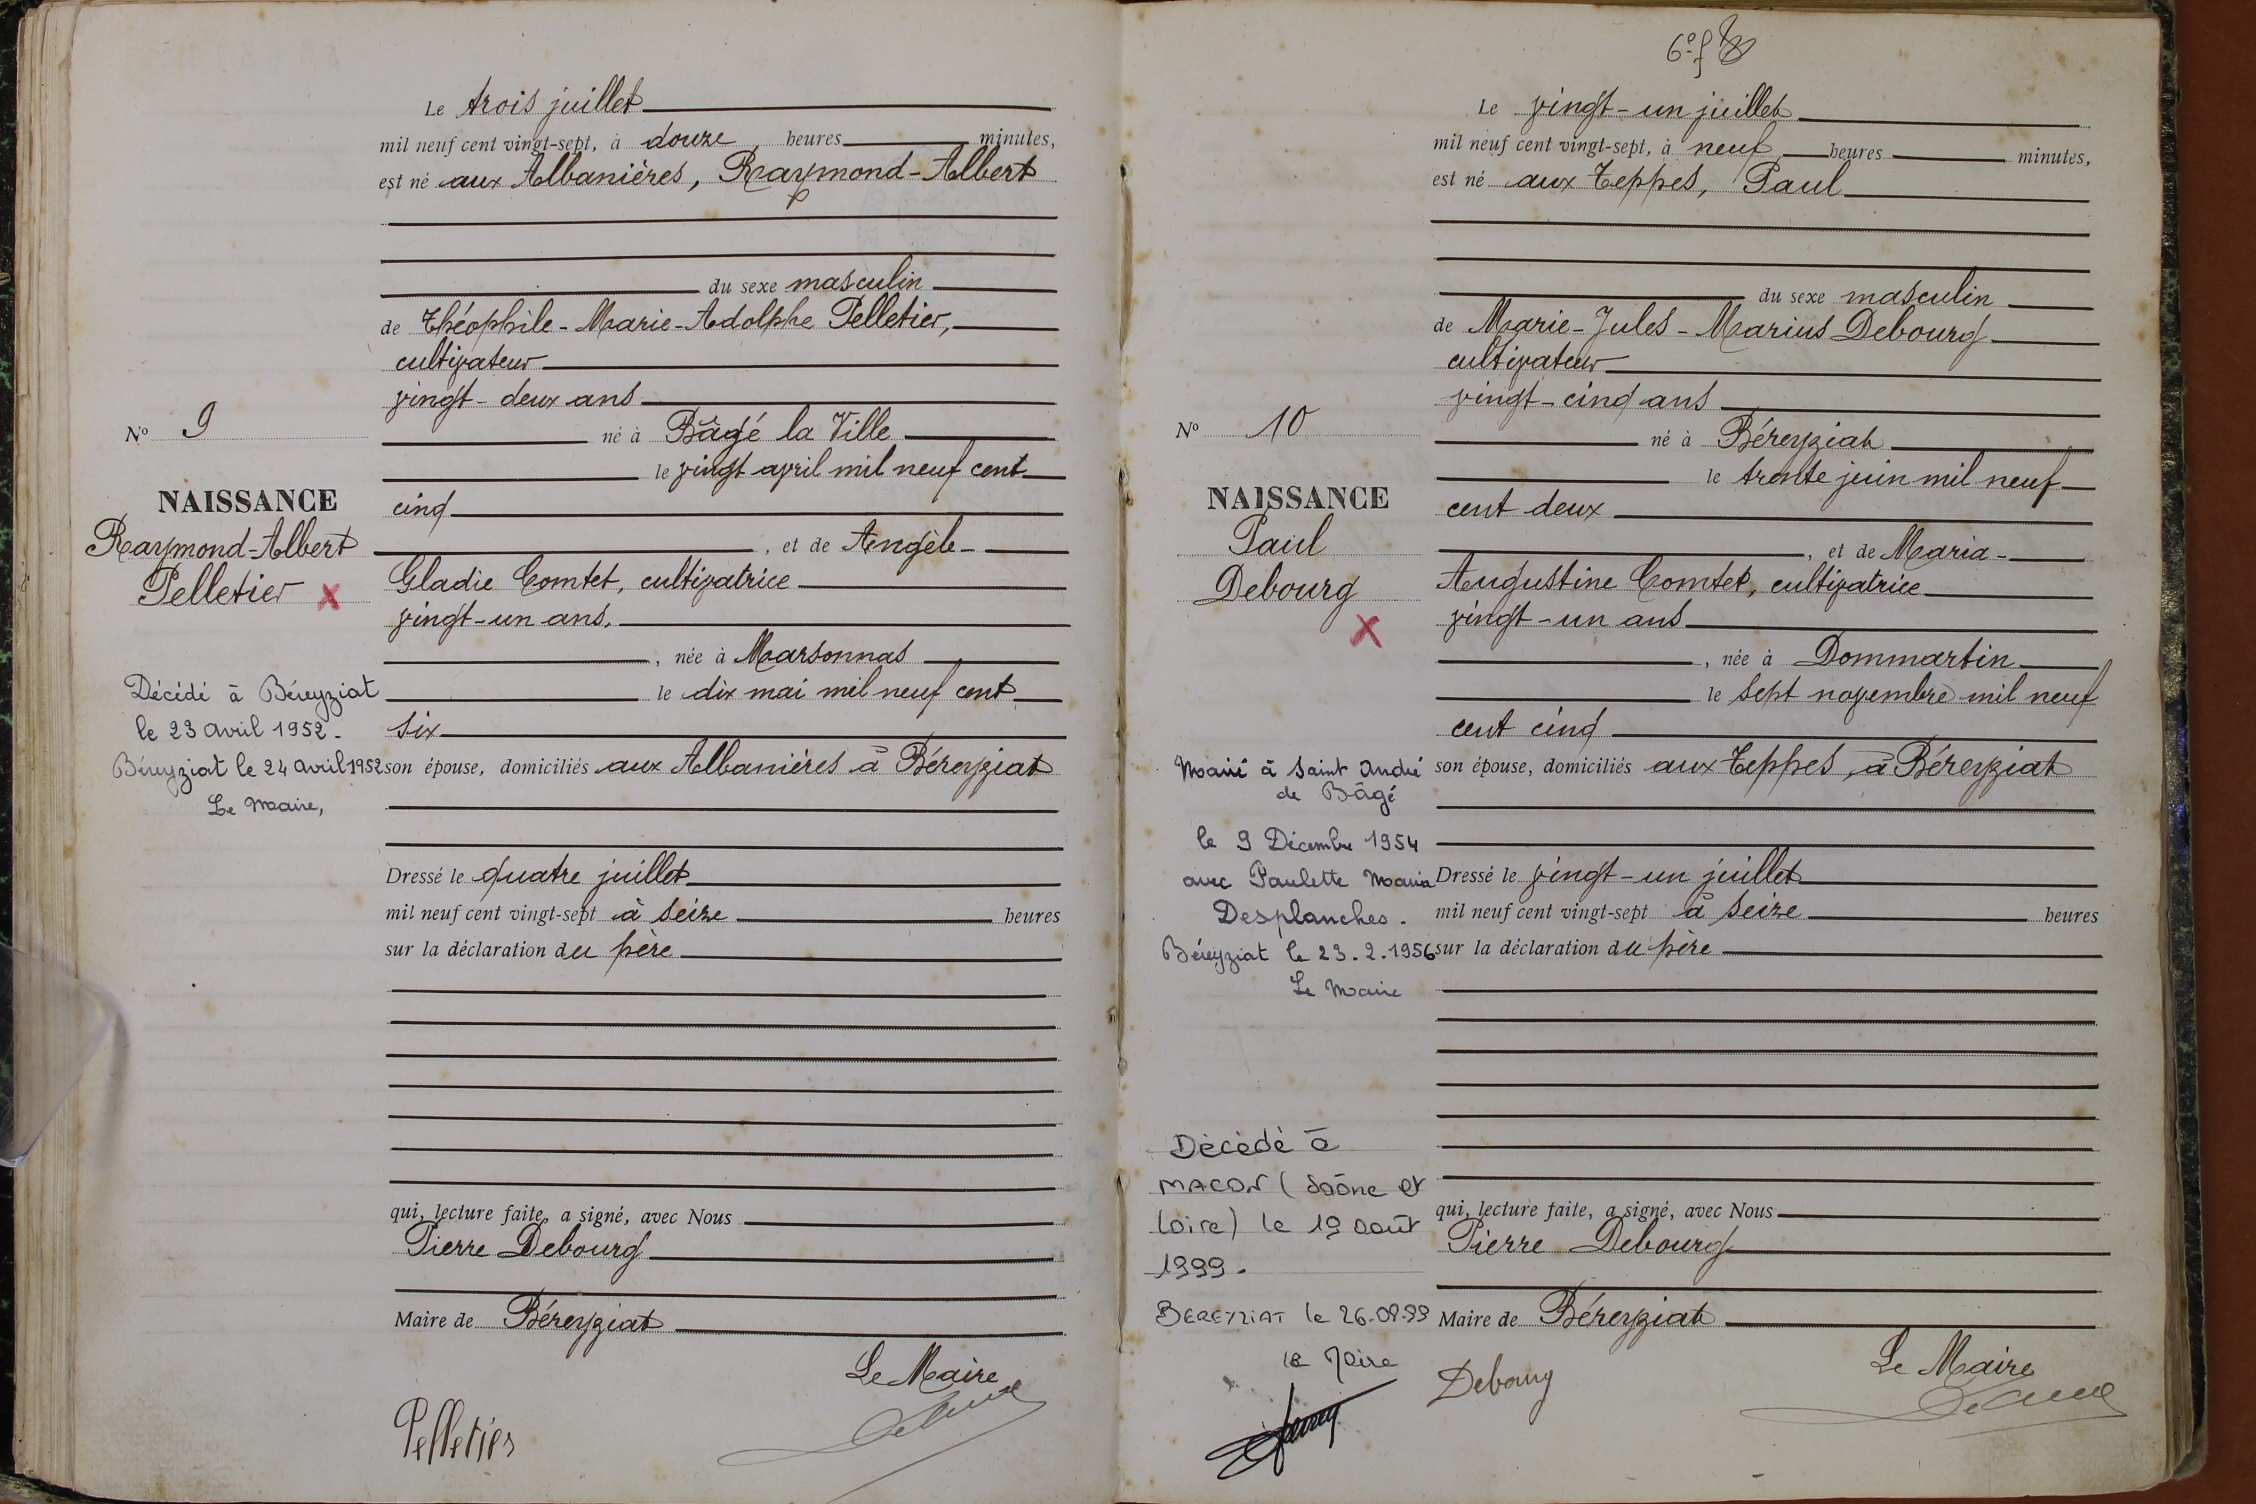 Le trois juillet
mil neuf cent vingt-sept, à douze heures minutes,
est né aux Albanières, Raymond-Albert
du sexe masculin
de Théophile-Marie-Adolphe Pelletier,
cultivateur
vingt-deux ans
né à Bâgé la Ville
le vingt avril mil neuf cent
cinq
, et de Angèle-
Gladie Comtet, cultivatrice
vingt-un ans,
, née à Marsonnas
le dix mai mil neuf cent
six
son épouse, domiciliés aux Albanières à Béreyziat
Dressé le quatre juillet
mil neuf cent vingt-sept à seize heures
sur la déclaration du père
qui, lecture faite, a signé, avec Nous
Pierre Debourg
Maire de Béreyziat
Le Maire
Pelletier
No 9
NAISSANCE
Raymond-Albert
Pelletier
Décédé à Béreyziat
le 23 avril 1952.
Béreyziat le 24 avril 1952
Le Maire,
6e f
Le vingt-un juillet
mil neuf cent vingt-sept, à neuf heures minutes,
est né aux Teppes, Paul
du sexe masculin
de Marie-Jules-Marius Debourg
cultivateur
vingt-cinq ans
né à Béreyziat
le trente juin mil neuf
cent deux
, et de Maria-
Augustine Comtet, cultivatrice
vingt-un ans
, née à Dommartin
le sept novembre mil neuf
cent cinq
son épouse, domiciliés aux Teppes, à Béreyziat
Dressé le vingt-un juillet
mil neuf cent vingt-sept à seize heures
sur la déclaration du père
qui, lecture faite, a signé, avec Nous
Pierre Debourg
Maire de Béreyziat
Le Maire
Debourg
No 10
NAISSANCE
Paul
Debourg
Marié à Saint André
de Bâgé
le 9 Décembre 1954
avec Paulette Maria
Desplanches.
Béreyziat le 23.2.1956
Le Maire
Décédé à
MACON (Saône et
Loire) le 19 août
1999.
BEREYZIAT le 26.08.99
le Maire